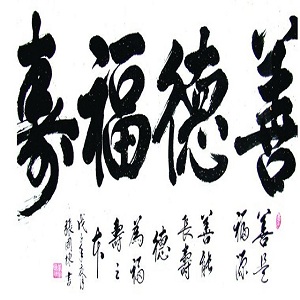 善德福壽
善是
福源
善能
長壽
德
為福
壽之
本